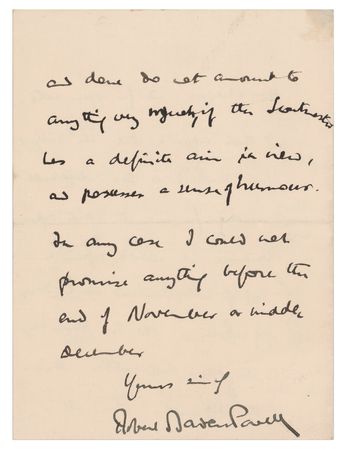 as done do not amount to
anything very        if the Scoutmaster
has a definite aim in view,
and possesses a sense of humour.
In any case I could not
promise anything before the
end of November or middle
December
Yours sincly
Robert Baden Powell